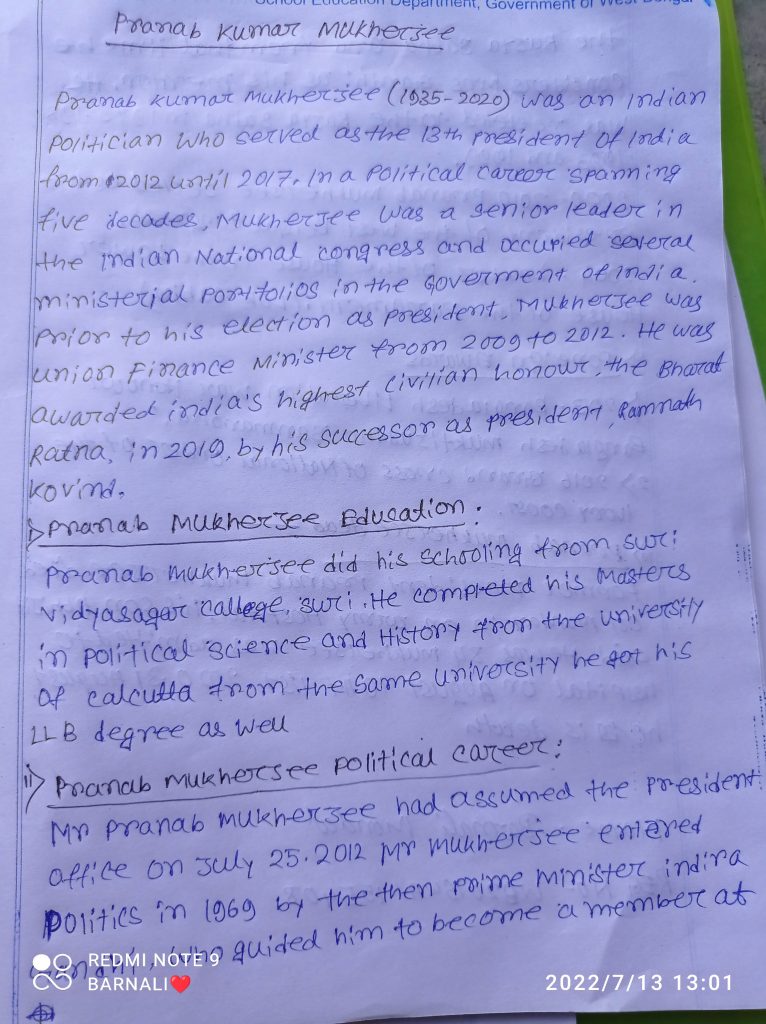 School Education Department, Government of West Bengal
Pranab Kumar Mukherjee
Pranab Kumar Mukherjee (1935-2020) was an Indian
Politician who served as the 13th president of India
from 2012 until 2017. In a political career spanning
five decades, Mukherjee was a senior leader in
the Indian National congress and occupied several
ministerial portfolios in the Goverment of India.
Prior to his election as president, Mukherjee was
union Finance Minister from 2009 to 2012. He was
awarded india's highest civilian honour, the Bharat
Ratna, in 2019, by his successor as president, Ramnath
Kovind.
Pranab Mukherjee Education:
Pranab Mukherjee did his schooling from suri
vidyasagar college, suri. He completed his Masters
in political science and History from the university
of calcutta from the same university he got his
LLB degree as well
ii) Pranab Mukherjee political career:
Mr Pranab Mukherjee had assumed the president
office on July 25.2012 Mr Mukherjee entered
Politics in 1969 by the then prime minister indira
Gandhi, who guided him to become a member at
REDMI NOTE 9
BARNALI❤️
2022/7/13 13:01